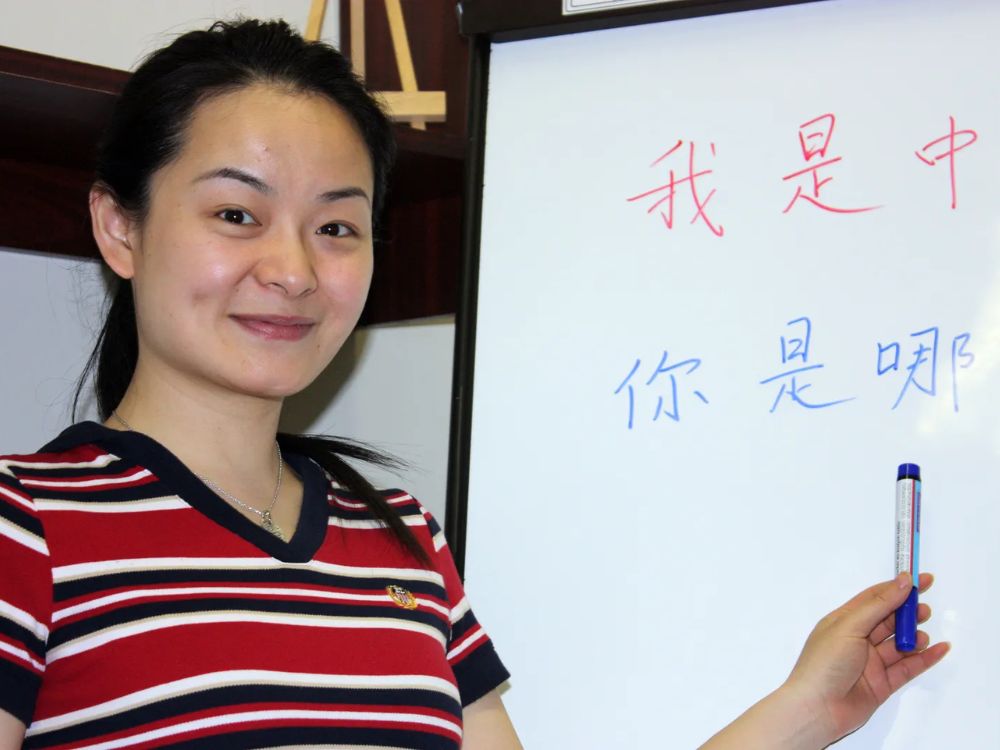 我是中
你是哪